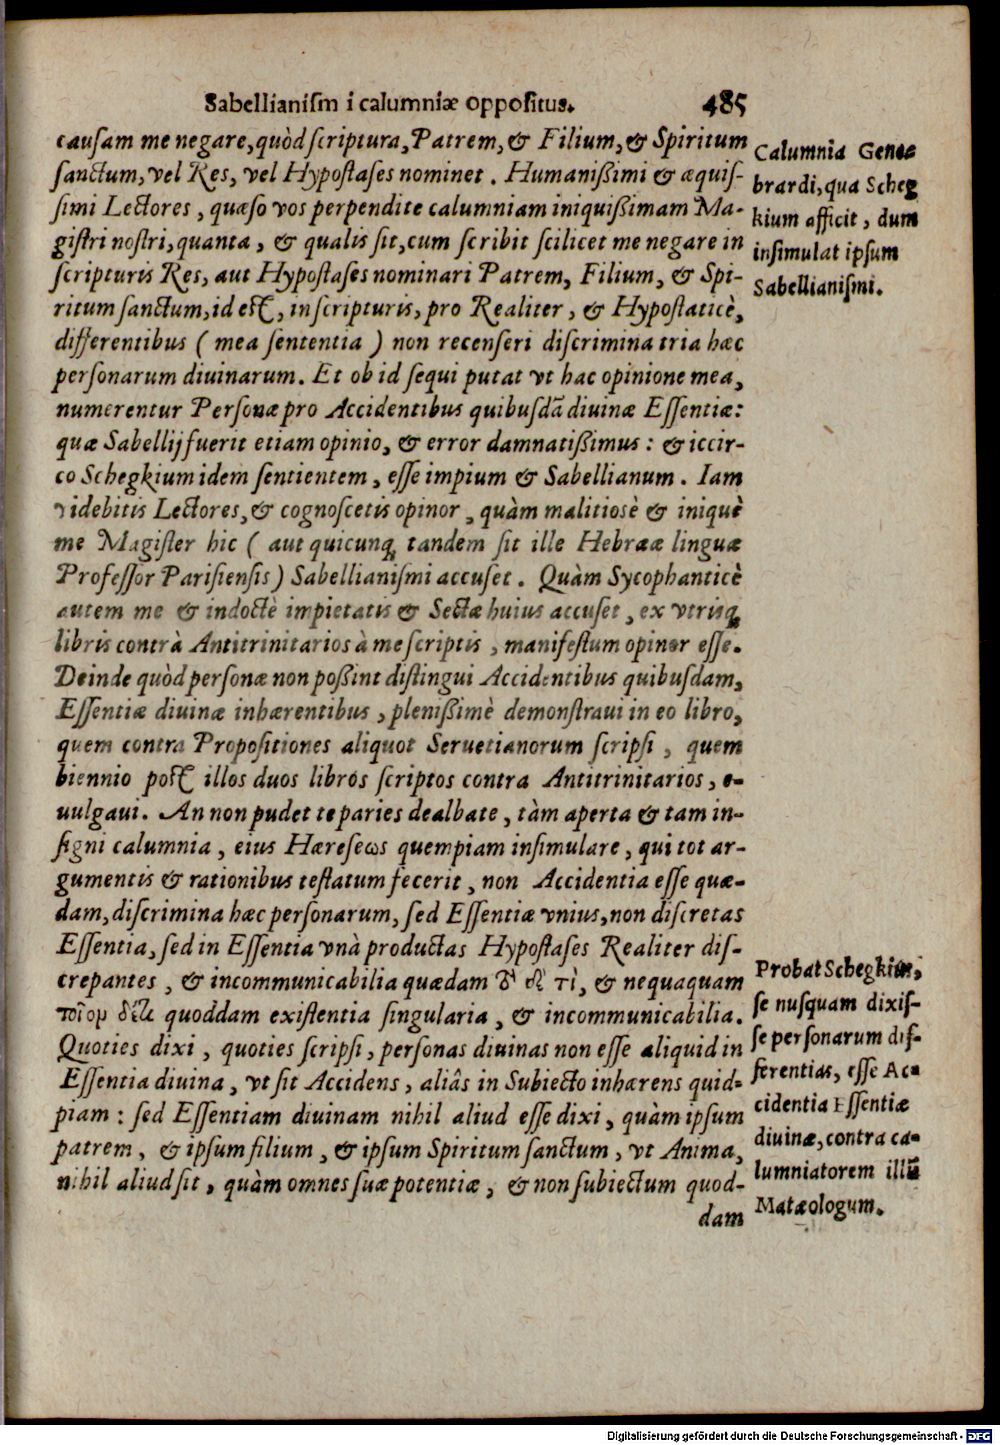 Sabellianiſm i calumniæ oppoſitus. 485
cauſam me negare, quòd ſcriptura, Patrem, & Filium, & Spiritum
ſanctum, vel Res, vel Hypoſtaſes nominet. Humanißimi & æquiſ-
ſimi Lectores, quæſo vos perpendite calumniam iniquißimam Ma-
giſtri noſtri, quanta, & qualis ſit, cum ſcribit ſcilicet me negare in
ſcripturis Res, aut Hypoſtaſes nominari Patrem, Filium, & Spi-
ritum ſanctum, id eſt, in ſcripturis, pro Realiter, & Hypoſtaticè,
differentibus ( mea ſententia ) non recenſeri diſcrimina tria hæc
perſonarum diuinarum. Et ob id ſequi putat vt hac opinione mea,
numerentur Perſonæ pro Accidentibus quibuſdā diuinæ Eſſentiæ:
quæ Sabellij fuerit etiam opinio, & error damnatißimus: & iccir-
co Schegkium idem ſentientem, eſſe impium & Sabellianum. Iam
videbitis Lectores, & cognoſcetis opinor, quàm malitiosè & iniquè
me Magiſter hic ( aut quicunq; tandem ſit ille Hebrææ linguæ
Profeſſor Pariſienſis ) Sabellianiſmi accuſet. Quàm Sycophanticè
autem me & indoctè impietatis & Sectæ huius accuſet, ex vtriſq;
libris contrà Antitrinitarios à me ſcriptis, manifeſtum opinor eſſe.
Deinde quòd perſonæ non poßint diſtingui Accidentibus quibuſdam,
Eſſentiæ diuinæ inhærentibus, plenißimè demonſtraui in eo libro,
quem contra Propoſitiones aliquot Seruetianorum ſcripſi, quem
biennio poſt illos duos libros ſcriptos contra Antitrinitarios, e-
uulgaui. An non pudet te paries dealbate, tàm aperta & tam in-
ſigni calumnia, eius Hæreſeωs quempiam inſimulare, qui tot ar-
gumentis & rationibus teſtatum fecerit, non Accidentia eſſe quæ-
dam, diſcrimina hæc perſonarum, ſed Eſſentiæ vnius, non diſcretas
Eſſentia, ſed in Eſſentia vnà productas Hypoſtaſes Realiter diſ-
crepantes, & incommunicabilia quædam τὶ, & nequaquam
quoddam exiſtentia ſingularia, & incommunicabilia.
Quoties dixi, quoties ſcripſi, perſonas diuinas non eſſe aliquid in
Eſſentia diuina, vt ſit Accidens, aliâs in Subiecto inhærens quid-
piam: ſed Eſſentiam diuinam nihil aliud eſſe dixi, quàm ipſum
patrem, & ipſum filium, & ipſum Spiritum ſanctum, vt Anima,
nihil aliud ſit, quàm omnes ſuæ potentiæ, & non ſubiectum quod-
dam
Calumnia Gene-
brardi, qua Scheg
kium afficit, dum
inſimulat ipſum
Sabellianiſmi.
Probat Schegkius,
ſe nuſquam dixiſ-
ſe perſonarum dif-
ferentias, eſſe Ac-
cidentia Eſſentiæ
diuinæ, contra ca-
lumniatorem illū
Matæologum.
Digitalisierung gefördert durch die Deutsche Forschungsgemeinschaft - DFG